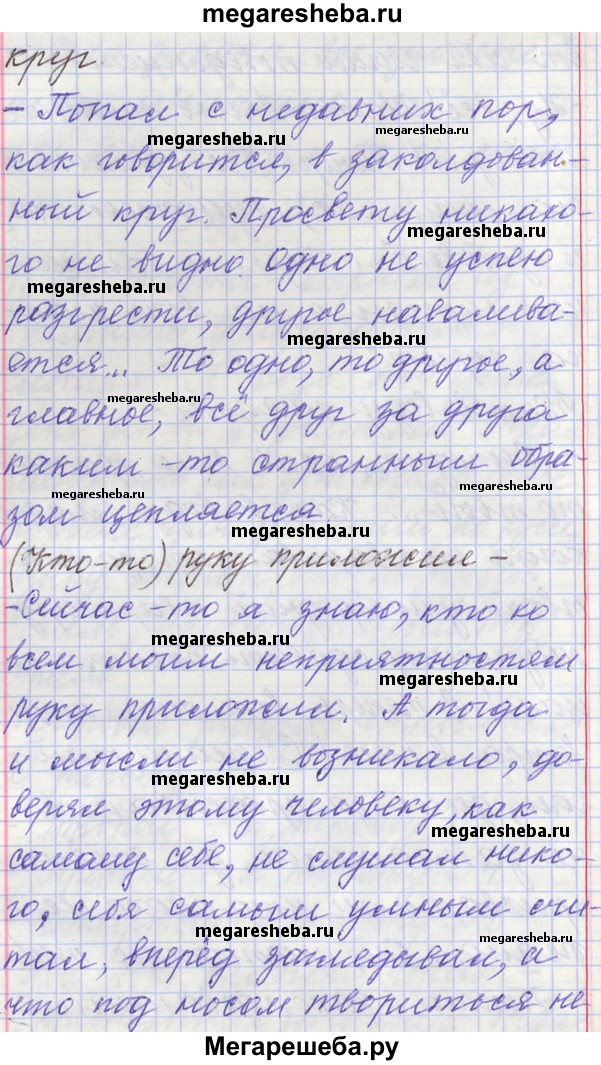 megaresheba.ru
круг.
- Попал с недавних пор,
megaresheba.ru
megaresheba.ru
как говорится, в заколдован-
ный круг. Просвету никако-
megaresheba.ru
го не видно. Одно не успею
megaresheba.ru
разгрести, другое навалива-
megaresheba.ru
ется... То одно, то другое, а
megaresheba.ru
главное, всё друг за друга
каким-то странным обра-
megaresheba.ru
megaresheba.ru
зом цепляется
megaresheba.ru
(Кто-то) руку приложил -
-Сейчас-то я знаю, кто ко
megaresheba.ru
всем моим неприятностям
megaresheba.ru
руку приложил. А тогда
и мысли не возникало, до-
megaresheba.ru
верял этому человеку, как
megaresheba.ru
самому себе, не слушал нико-
го, себя самым умным счи-
megaresheba.ru
megaresheba.ru
тал, вперёд заглядывал, а
что под носом твориться не
megaresheba.ru
Мегарешеба.ру